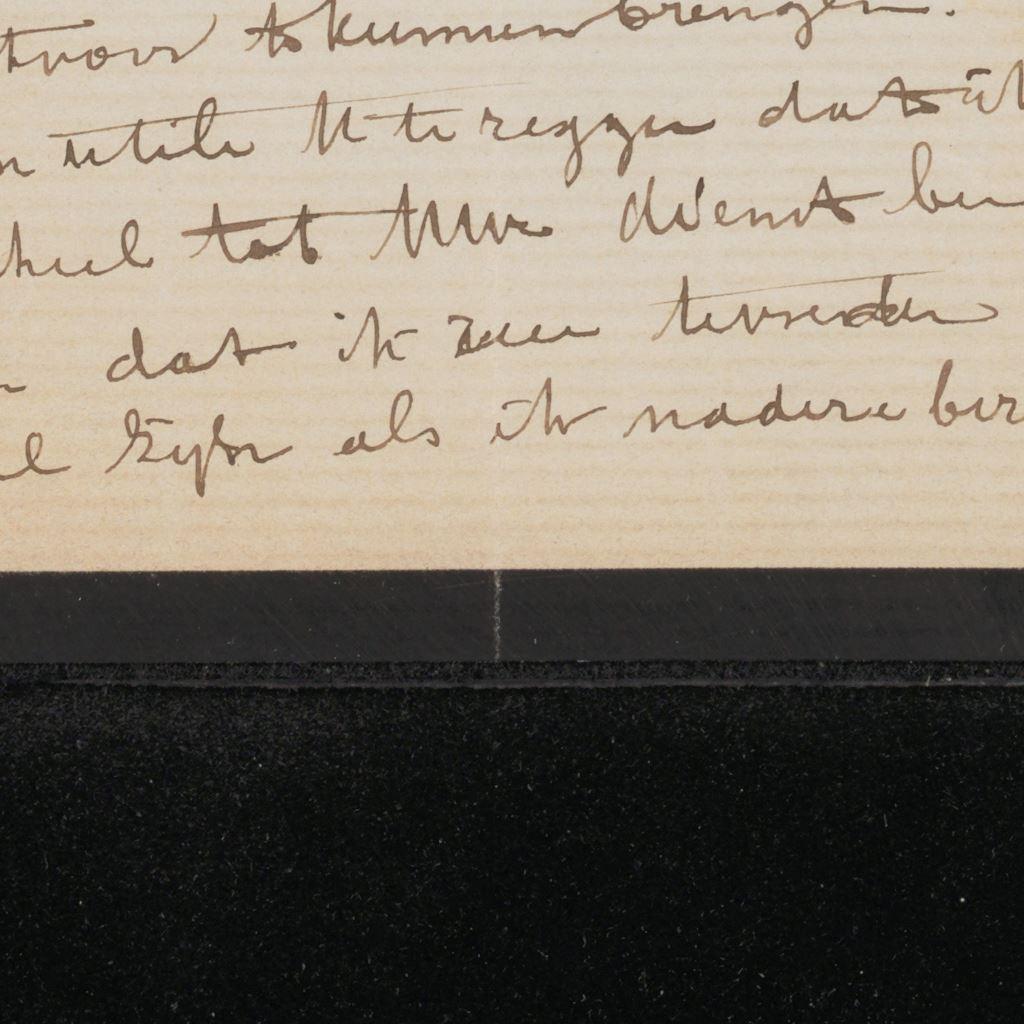 voor te kunnen brengen.
U te zeggen dat ik
heel tot Uwe dienst ben
dat ik zeer tevreden
zijn als ik nadere ber